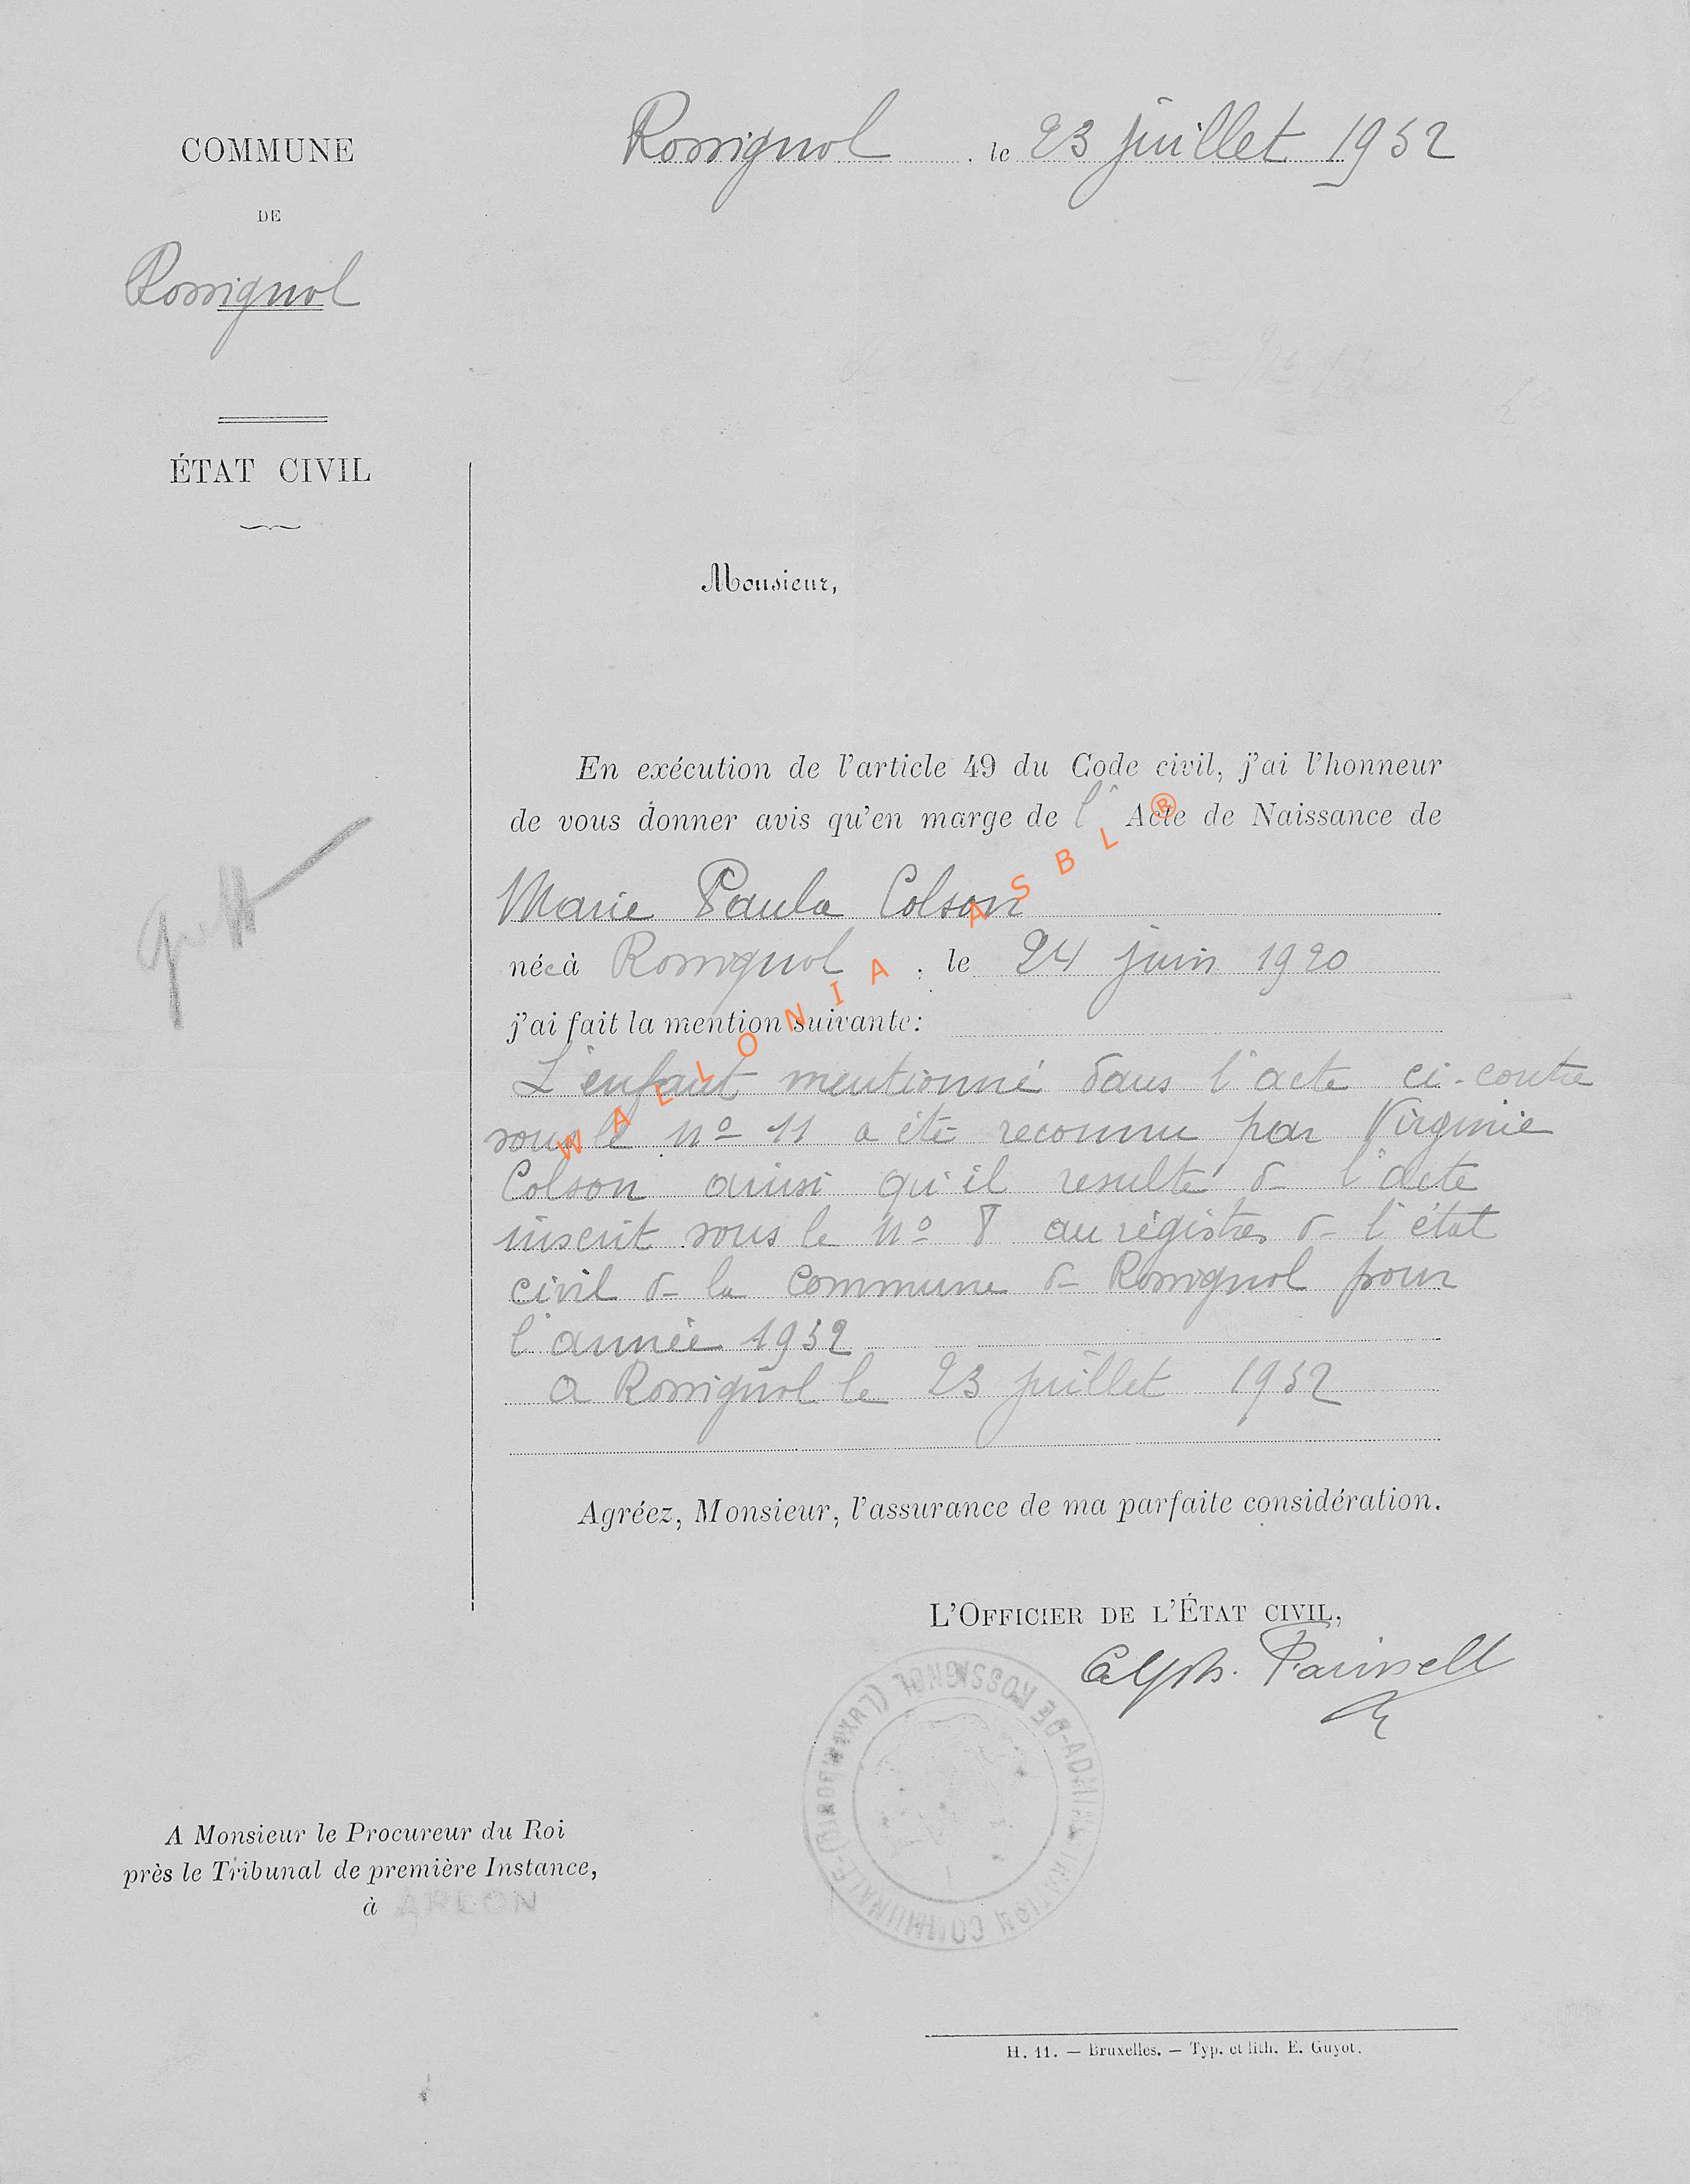 COMMUNE
DE
Rossignol
ÉTAT CIVIL
Rossignol, le 23 juillet 1932
Monsieur,
En exécution de l'article 49 du Code civil, j'ai l'honneur
de vous donner avis qu'en marge de l' Acte de Naissance de
Marie Paula Colson
née à Rossignol, le 24 juin 1920
j'ai fait la mention suivante:
L'enfant mentionné dans l'acte ci-contre
sous le nº 11 a été reconnu par Virginie
Colson ainsi qu'il resulte de l'acte
inscrit sous le nº 8 au régistres de l'état
civil de la commune de Rossignol pour
l'année 1932
a Rossignol le 23 juillet 1932
Agréez, Monsieur, l'assurance de ma parfaite considération.
L'OFFICIER DE L'ÉTAT CIVIL,
Alph.
ADMINISTRATION COMMUNALE DE ROSSIGNOL (LUXEMBOURG)
A Monsieur le Procureur du Roi
près le Tribunal de première Instance,
à ARLON
H. 11. — Bruxelles. — Typ. et lith. E. Guyot.
WALLONIA ASBL ®